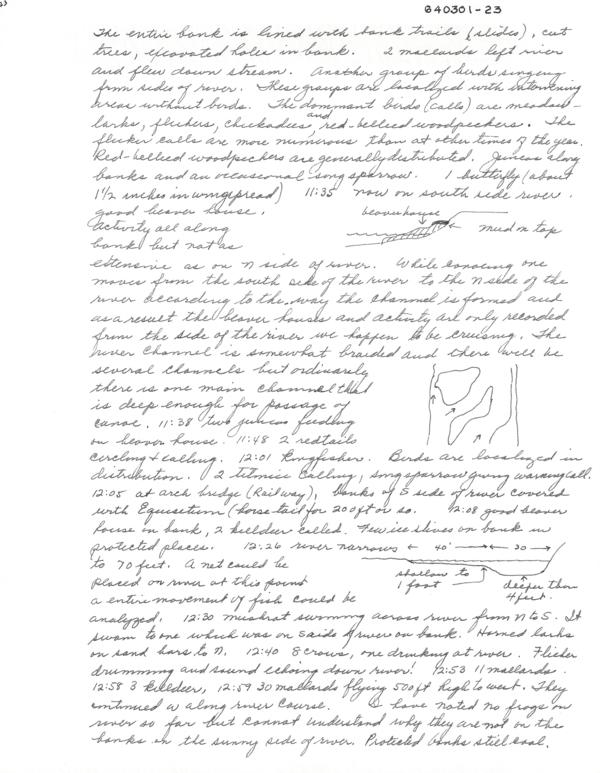 640301-23
The entire bank is lined with bank trails (slides), cut
trees, excavated holes in bank. 2 mallards left river
and flew down stream. Another group of birds singing
from sides of river. These groups are localized with intervening
areas without birds. The dominant birds (calls) are meadow-
larks, flickers, chickadees, and red-bellied woodpeckers. The
flicker calls are more numerous than at other times of the year.
Red-bellied woodpeckers are generally distributed. Juncos along
banks and an occasional song sparrow. 1 butterfly (about
1 1/2 inches in wingspread) 11:35 now on south side river.
good beaver house. beaver house
activity all along mud on top
bank but not as
extensive as on N side of river. While canoeing one
moves from the south side of the river to the N side of the
river according to the way the channel is formed and
as a result the beaver houses and activity are only recorded
from the side of the river we happen to be cruising. The
river channel is somewhat braided and there will be
several channels but ordinarily
there is one main channel that
is deep enough for passage of
canoe. 11:38 two juncos feeding
on beaver house. 11:48 2 redtails
circling & calling. 12:01 Kingfisher. Birds are localized in
distribution. 2 titmice calling, song sparrow giving warning call.
12:05 at arch bridge (Railway), banks of S side of river covered
with Equisetum (horse tail) for 200 ft or so. 12:08 good beaver
house in bank, 2 killdeer called. Few ice slivers on bank in
protected places. 12:26 river narrows ← 40' → 30 →
to 70 feet. A net could be shallow to
placed on river at this point 1 foot deeper than
a entire movement of fish could be 4 feet.
analyzed. 12:30 muskrat swimming across river from N to S. It
swam to one which was on S side of river on bank. Horned larks
on sand bars to N. 12:40 8 crows, one drinking at river. Flicker
drumming and sound echoing down river! 12:53 11 mallards.
12:58 3 killdeer, 12:59 30 mallards flying 500 ft high to west. They
continued W along river course. I have noted no frogs on
river so far but cannot understand why they are not on the
banks on the sunny side of river. Protected banks still cool.